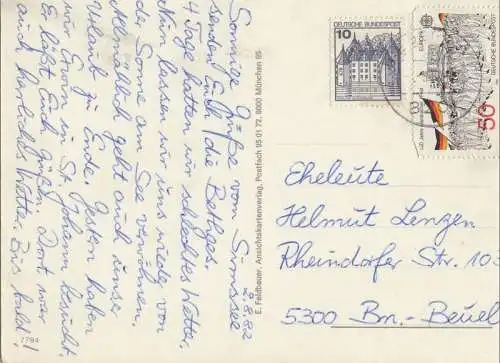 Sonnige Grüße vom Simssee
2.8.82
senden Euch die Bethges.
4 Tage hatten wir schlechtes Wetter.
Nun lassen wir uns wieder von
der Sonne am See verwöhnen.
Allmählich geht auch unser
Urlaub zu Ende. Gestern haben
wir Erwin in St. Johann besucht.
Er läßt Euch grüßen. Dort war
auch herrliches Wetter. Bis bald!
7794
E. Feldbauer, Ansichtskartenverlag, Postfach 95 01 72, 8000 München 95
10
DEUTSCHE BUNDESPOST
EUROPA
DEUTSCHE BUNDESPOST
50
Eheleute
Helmut Lenzen
Rheindorfer Str. 103
5300 Bn.-Beuel